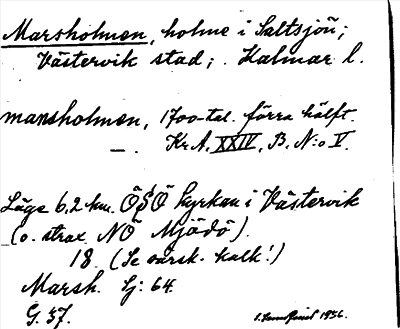 Marsholmen, holme i Saltsjön;
Västervik stad; Kalmar l.
mansholmen, 1700-tal. förra hälft.
—. Kr.A. XXIV, B. N:o V.
Läge 6,2 km. ÖSÖ kyrkan i Västervik
(o. strax NÖ Mjödö).
18. (Se särsk. kalk!)
Marsh. Lj: 64.
G. 37.
1936.